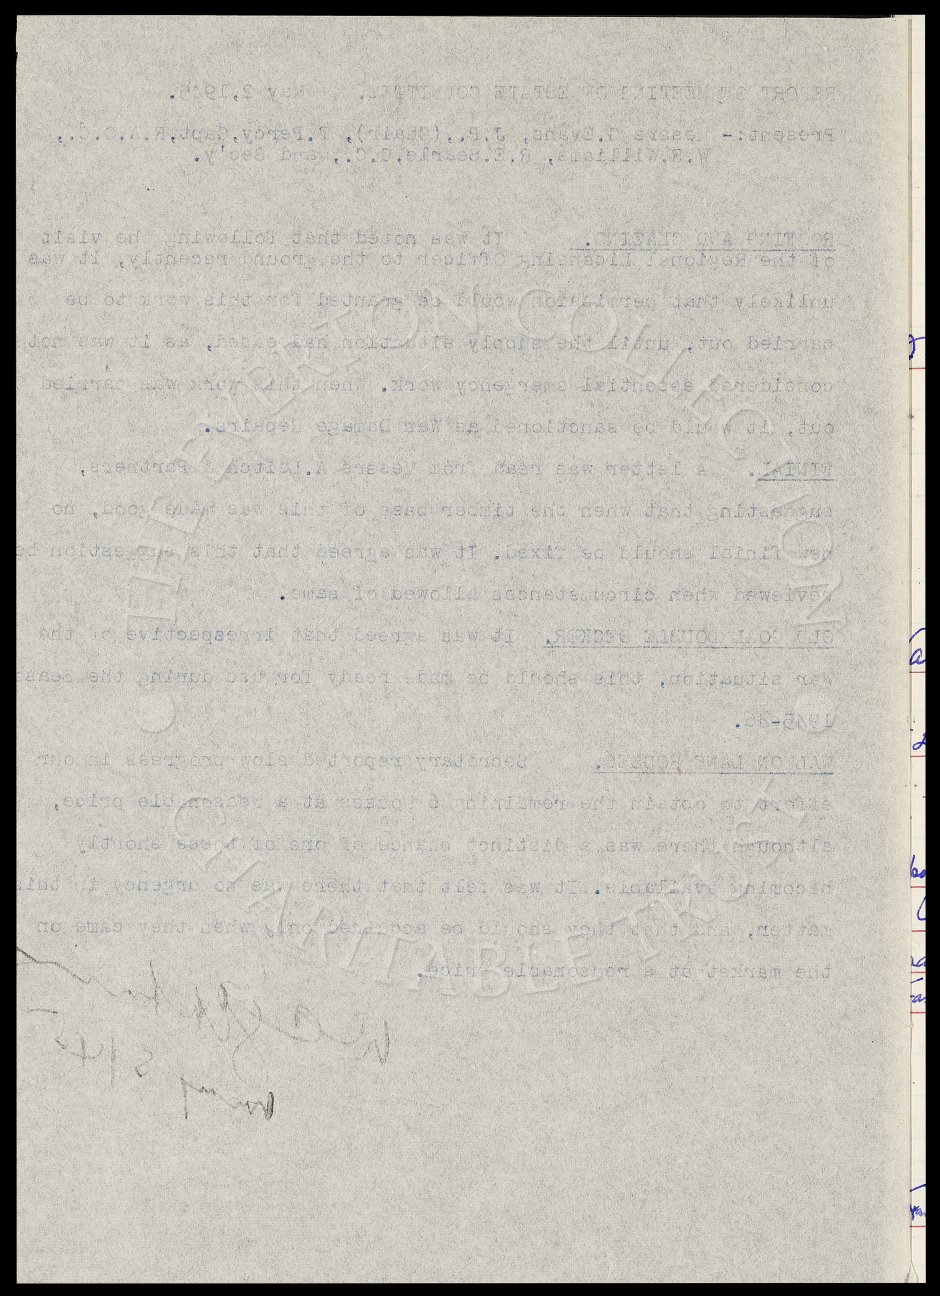 REPORT OF MEETING OF ESTATE COMMITTEE. May 2,1945.
Present:- Messrs T.Evans, J.P.,(Chair), T.Percy,Capt,R.A.O.C.,
W.R.Williams, R.E.Searle,O.C., and Sec'y.
ROOFING AND GLAZING. It was noted that following the visit
of the Regional Licensing Officer to the ground recently, it was
unlikely that permission would be granted for this work to be
carried out, until the supply situation had eased, as it was not
considered essential emergency work. When this work was carried
out, it would be sanctioned as War Damage Repairs.
FINIAL. A letter was read from Messrs A.Leitch & Partners,
suggesting that when the timber base of this was made good, no
new finial should be fixed. It was agreed that this question be
reviewed when circumstances allowed of same.
OLD GOAL DOUBLE DECKER. It was agreed that irrespective of the
war situation, this should be made ready for use during the Seas
1945-46.
WALTON LANE HOUSES. Secretary reported slow progress in our
effort to obtain the remaining 6 houses at a reasonable price,
although there was a distinct chance of one of these shortly
becoming available. It was felt that there was no urgency in this
matter, and that they should be acquired only when they came on
the market at a reasonable price.
May 8/45
THE EVERTON COLLECTION
CHARITABLE TRUST